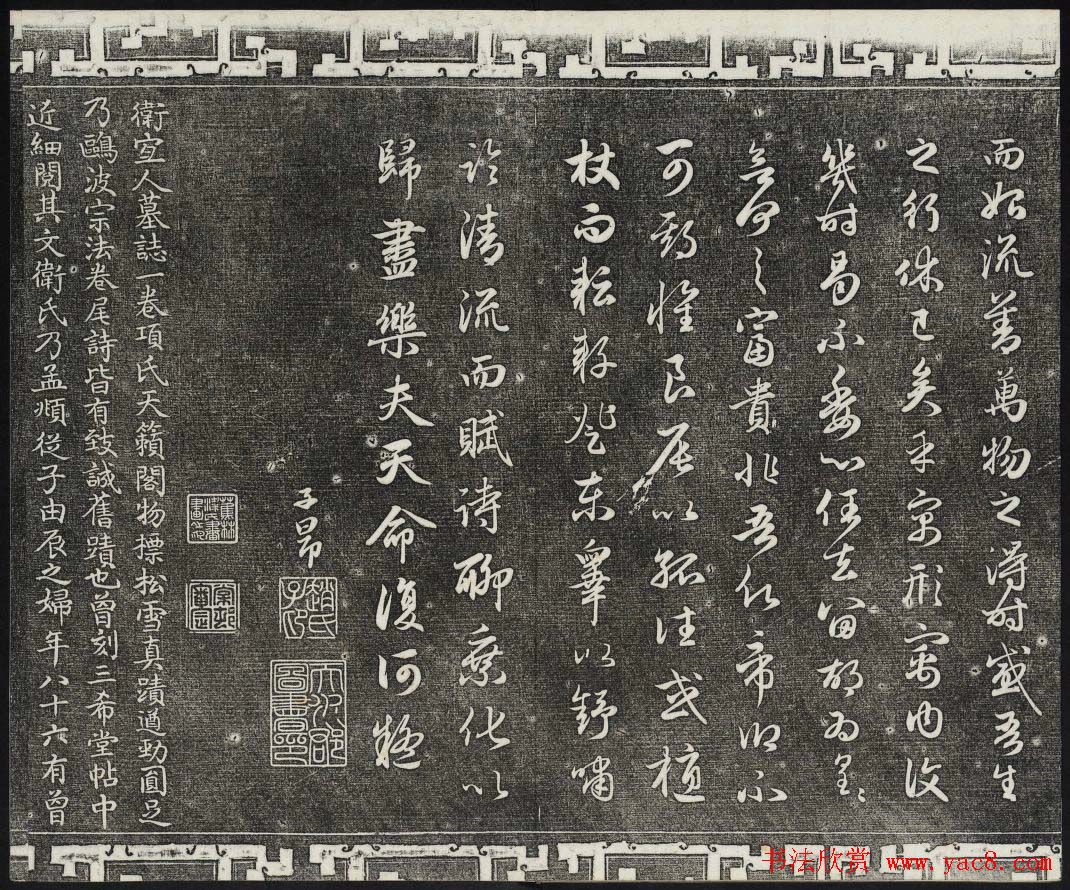 而始流善萬物之得時感吾生
之行休已矣乎寓形寓內復
幾時曷不委心任去留胡為皇〻
欲何之富貴非吾願帝鄉不
可期懷良辰以孤往或植
杖而耘耔登東皋以舒嘯
臨清流而賦詩聊乘化以
歸盡樂夫天命復何疑
子昂
趙氏子昂
天水郡圖書印
衛宜人墓誌一卷項氏天籟閣物標松雪真蹟遒勁圓足
乃鷗波宗法卷尾詩皆有致誠舊蹟也曾刻三希堂帖中
近細閱其文衛氏乃孟頫從子由辰之婦年八十六有曾
书法欣赏 www.yac8.com